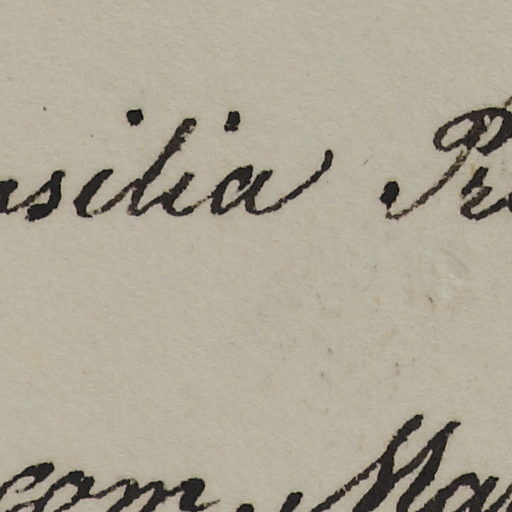 silia Pr
com Ma